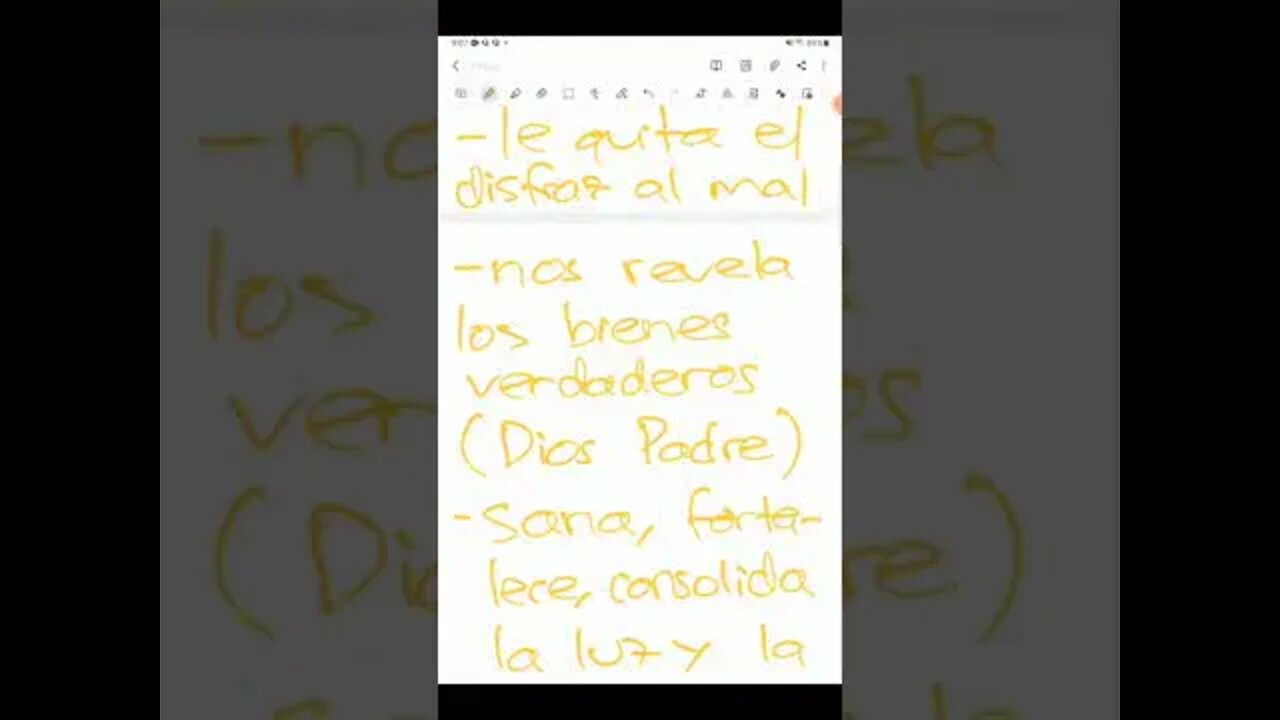 -le quita el
disfraz al mal
-nos revela
los bienes
verdaderos
(Dios Padre)
-Sana, forta-
lece, consolida
la luz y la